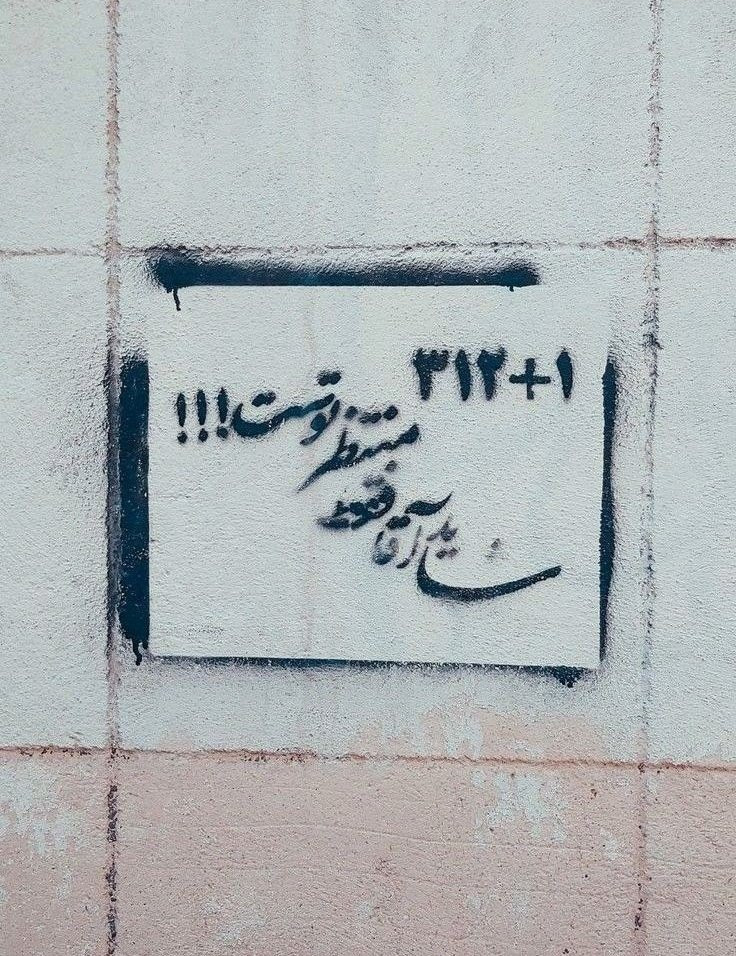 ۳۱۲+۱
شاید آقا فقط منتظر توست!!!